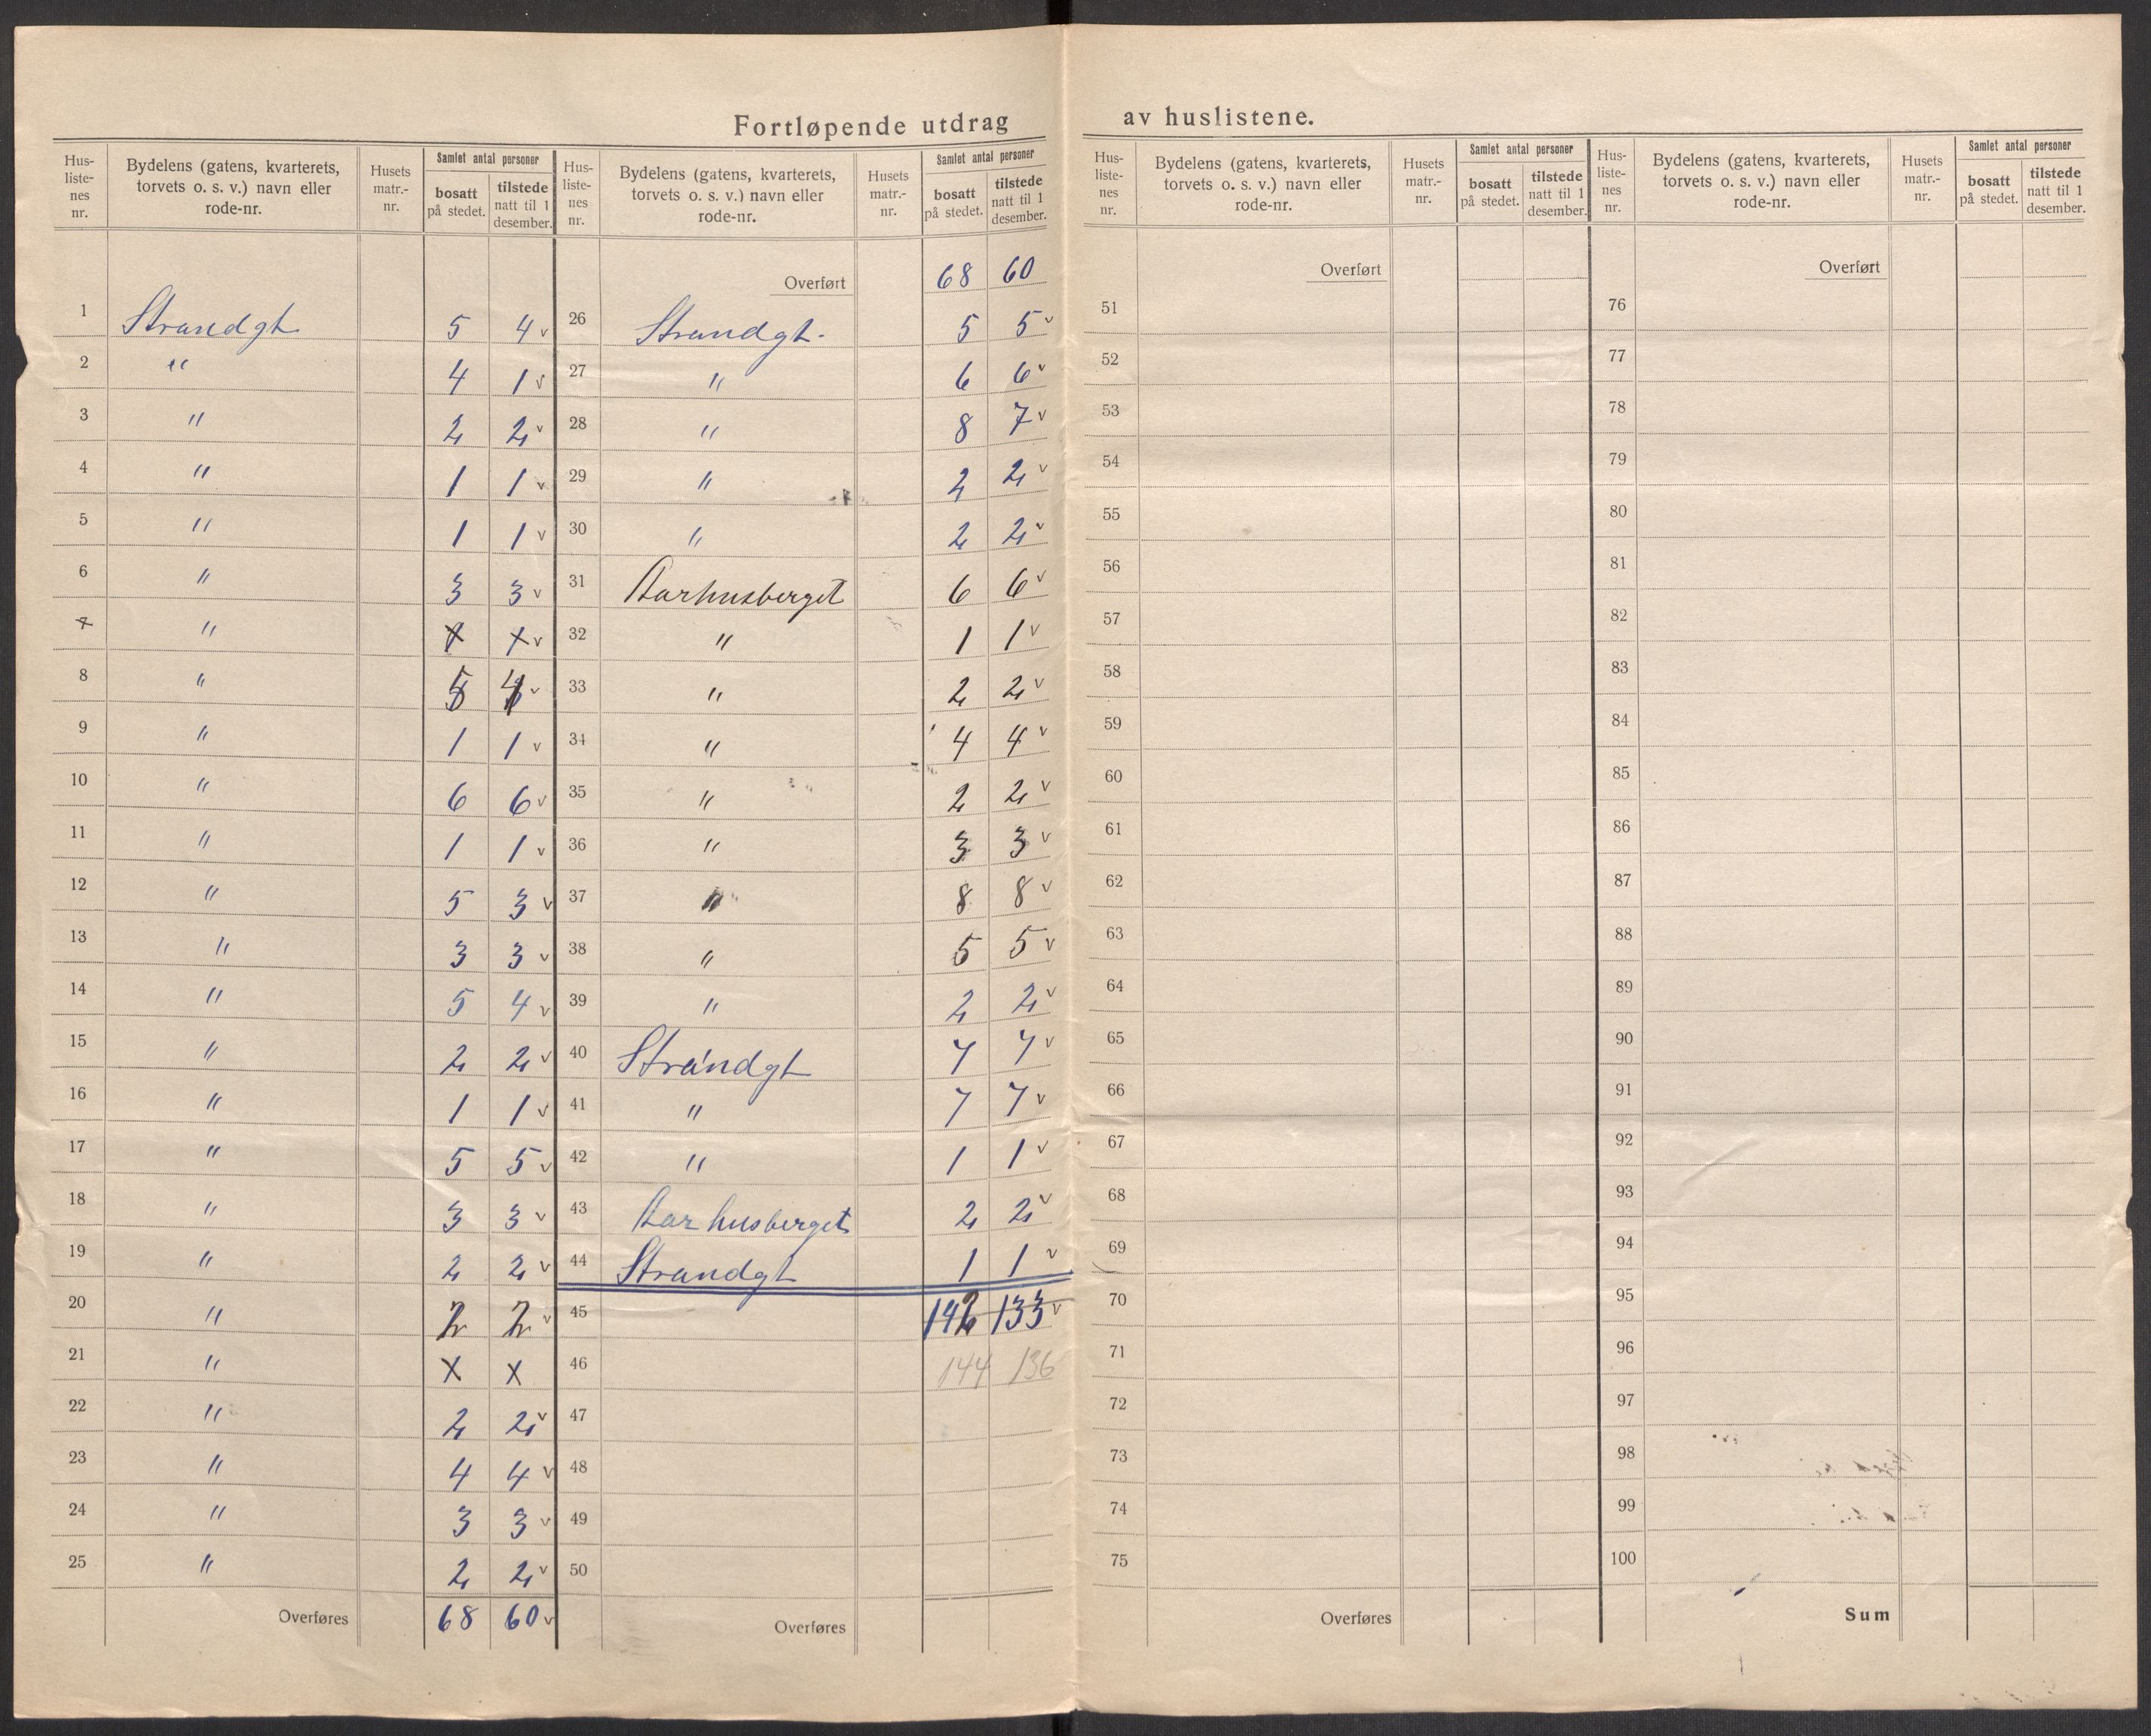 Fortløpende utdrag av huslistene.
Hus-listenes nr. | Bydelens (gatens, kvarterets, torvets o. s. v.) navn eller rode-nr. | Husets matr.-nr. | Samlet antal personer | bosatt på stedet. | tilstede natt til 1 desember.
1 Strandgt 5 4 v
2 " 4 1 v
3 " 2 2 v
4 " 1 1 v
5 " 1 1 v
6 " 3 3 v
7 " x x v
8 " 5 4 v
9 " 1 1 v
10 " 6 6 v
11 " 1 1 v
12 " 5 3 v
13 " 3 3 v
14 " 5 4 v
15 " 2 2 v
16 " 1 1 v
17 " 5 5 v
18 " 3 3 v
19 " 2 2 v
20 " 2 2 v
21 " x x
22 " 2 2 v
23 " 4 4 v
24 " 3 3 v
25 " 2 2 v
Overføres 68 60 v
Hus-listenes nr. | Bydelens (gatens, kvarterets, torvets o. s. v.) navn eller rode-nr. | Husets matr.-nr. | Samlet antal personer | bosatt på stedet. | tilstede natt til 1 desember.
Overført 68 60
26 Strandgt. 5 5 v
27 " 6 6 v
28 " 8 7 v
29 " 2 2 v
30 " 2 2 v
31 Aarhusberget 6 6 v
32 " 1 1 v
33 " 2 2 v
34 " 4 4 v
35 " 2 2 v
36 " 3 3 v
37 " 8 8 v
38 " 5 5 v
39 " 2 2 v
40 Strandgt 7 7 v
41 " 7 7 v
42 " 1 1 v
43 Aarhusberget 2 2 v
44 Strandgt 1 1 v
45 142 133 v
46 144 136
47
48
49
50
Overføres
Hus-listenes nr. | Bydelens (gatens, kvarterets, torvets o. s. v.) navn eller rode-nr. | Husets matr.-nr. | Samlet antal personer | bosatt på stedet. | tilstede natt til 1 desember.
Overført
51
52
53
54
55
56
57
58
59
60
61
62
63
64
65
66
67
68
69
70
71
72
73
74
75
Overføres
Hus-listenes nr. | Bydelens (gatens, kvarterets, torvets o. s. v.) navn eller rode-nr. | Husets matr.-nr. | Samlet antal personer | bosatt på stedet. | tilstede natt til 1 desember.
Overført
76
77
78
79
80
81
82
83
84
85
86
87
88
89
90
91
92
93
94
95
96
97
98
99
100
Sum